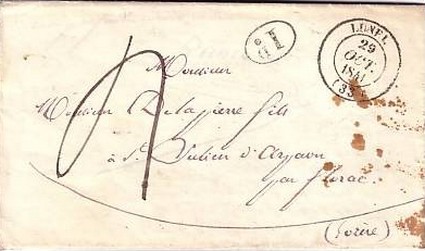 LUNEL
29
OCT.
(33)
Monsieur
Monsieur Delapierre fils
à St. Julien d'Arpaon
par florac
(Lozère)